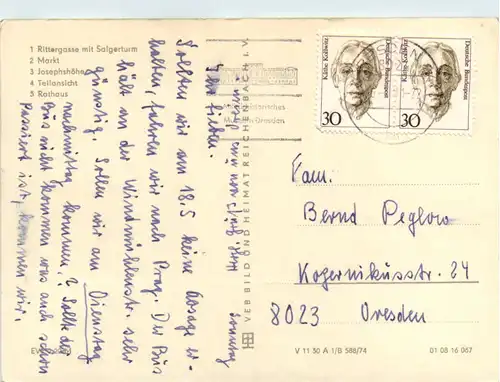 1 Rittergasse mit Salgerturm
2 Markt
3 Josephshöhe
4 Teilansicht
5 Rathaus
Sonntag
Ihr Lieben.
Sollten wir am 18.5 keine Absage er-
halten, fahren wir nach Prag. Der Bus
hält an der Windmühlenstr. sehr
günstig. Sollen wir am Dienstag
nachmittag kommen? Sollte der
Bus nicht kommen was auch schon
passiert ist, kommen wir.
VEB BILD UND HEIMAT REICHENBACH I. V.
Käthe Kollwitz
Deutsche Bundespost
30
Käthe Kollwitz
Deutsche Bundespost
30
Fam.
Bernd Peglow
Kopernikusstr. 24
8023 Dresden
V 11 30 A 1/B 588/74
01 08 16 067